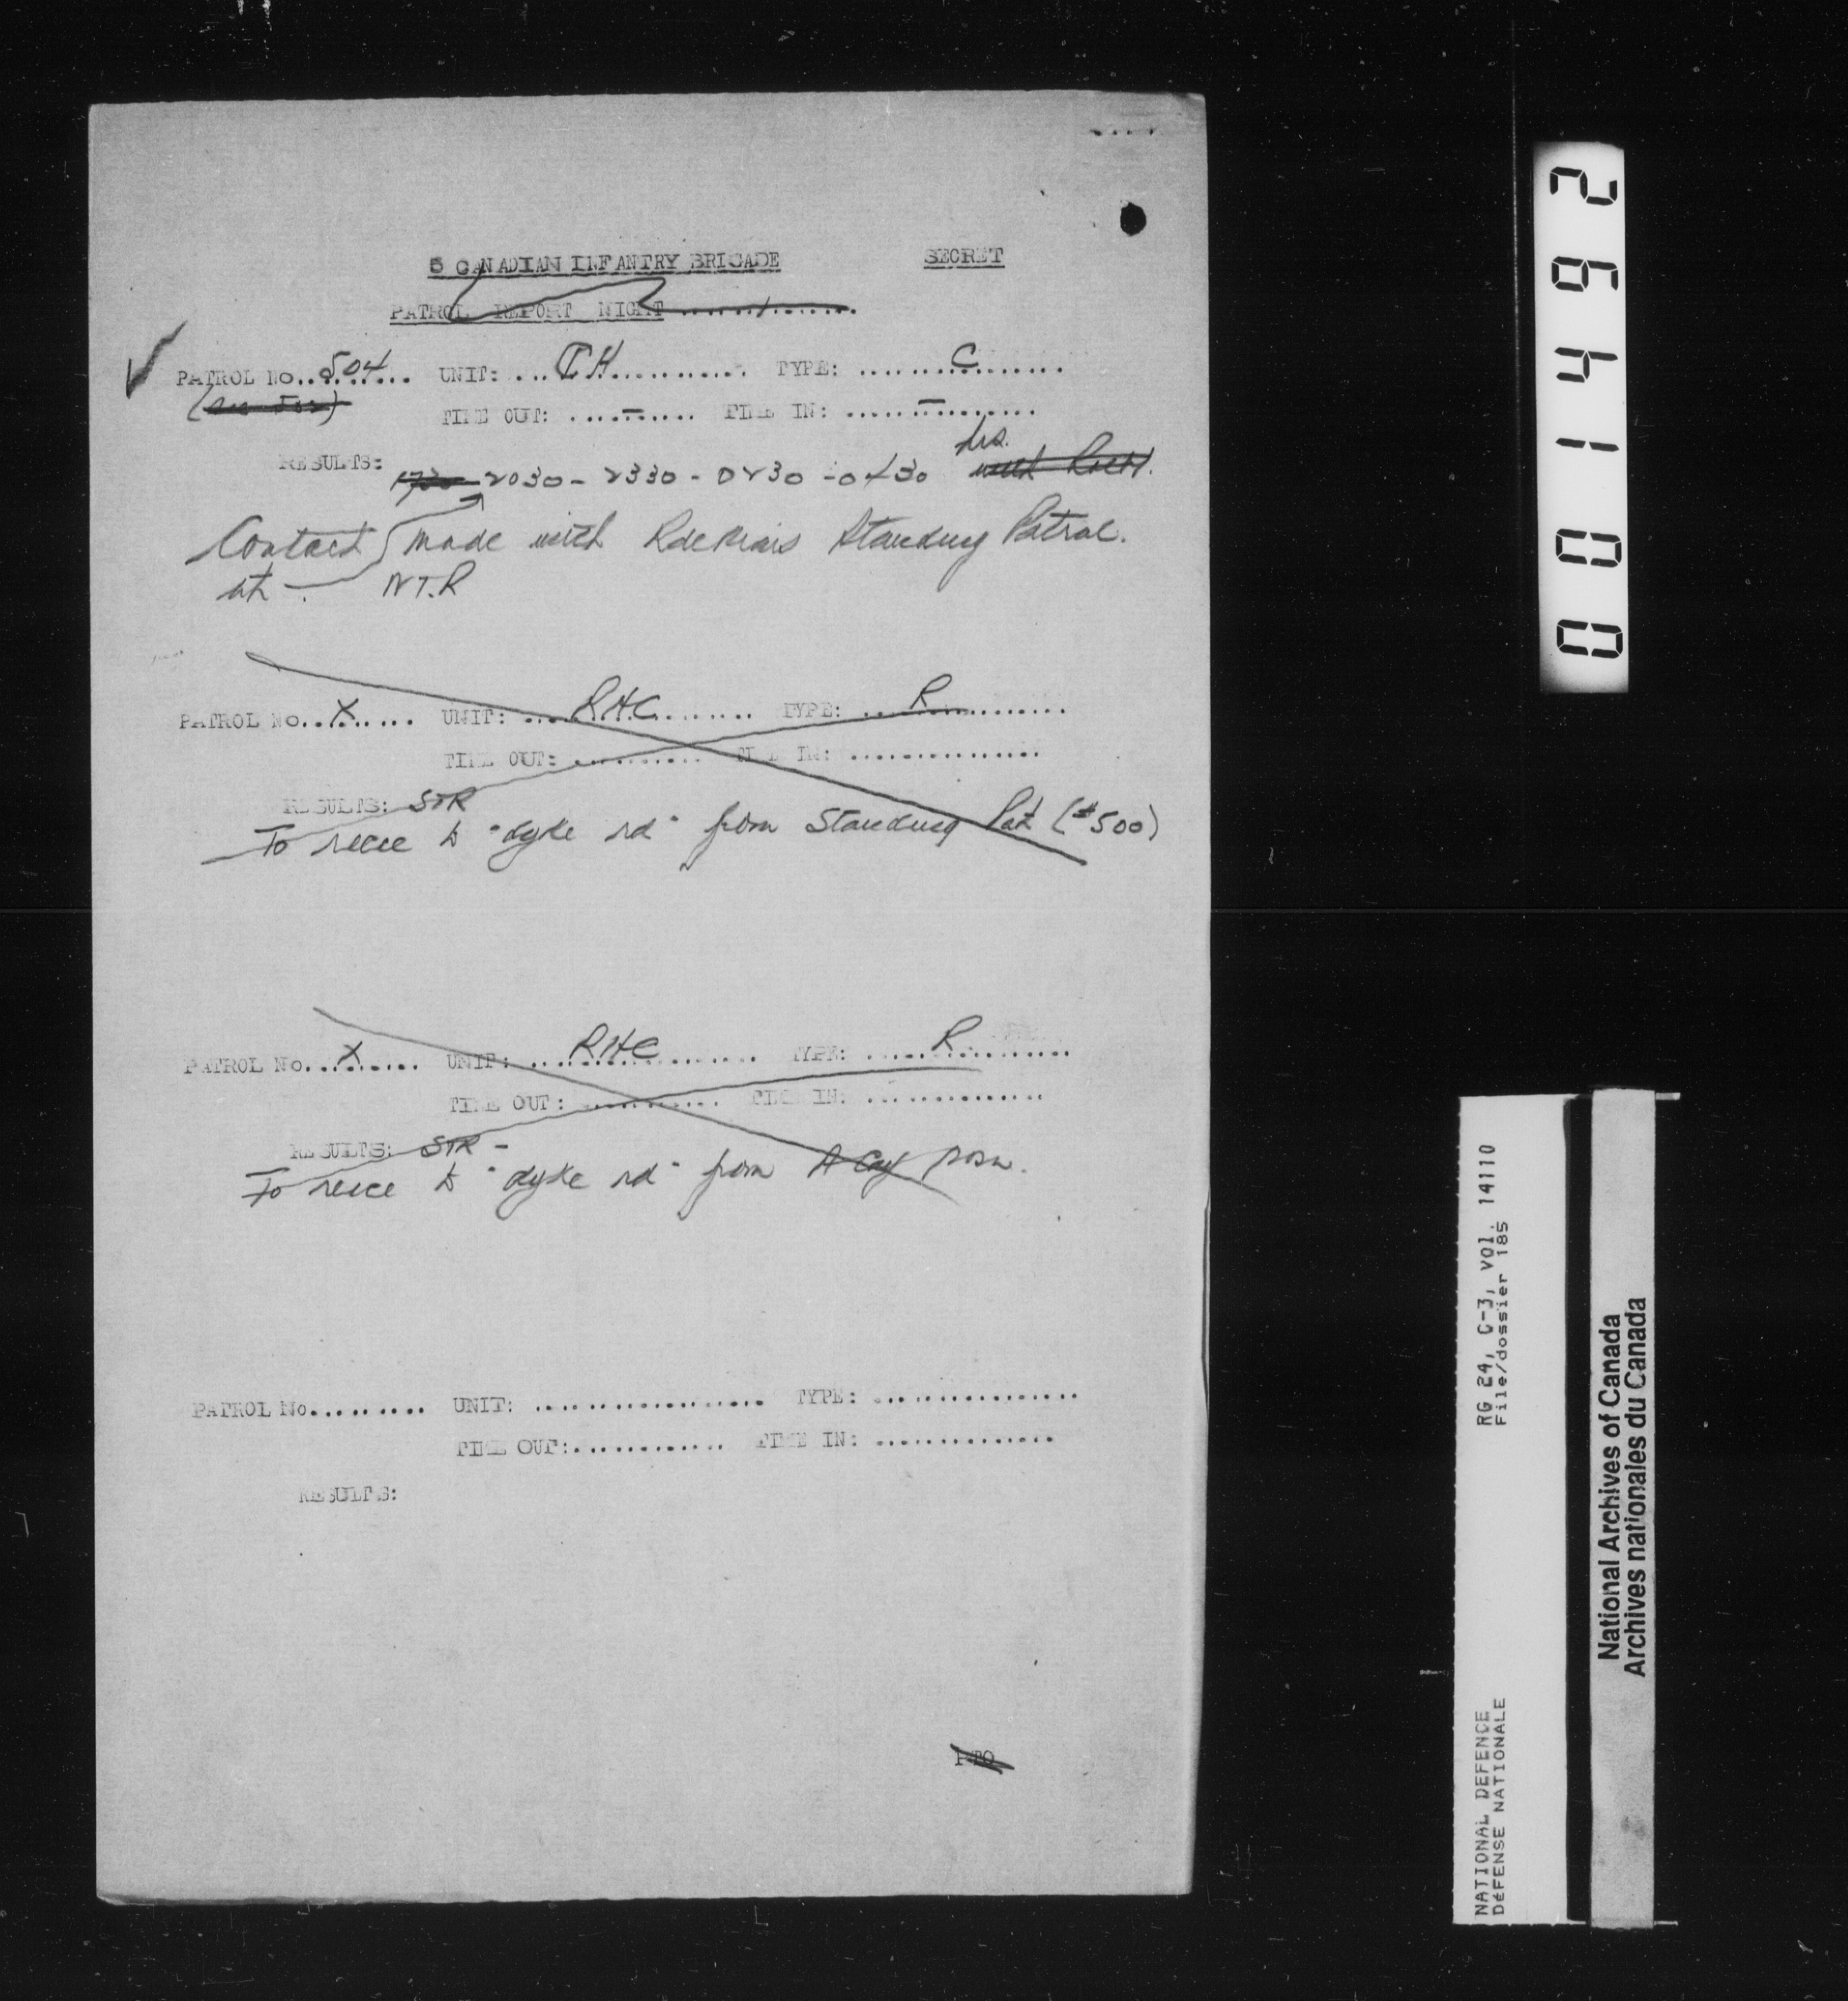 5 CANADIAN INFANTRY BRIGADE SECRET
PATROL REPORT NIGHT ..............
PATROL No. 504 UNIT: CH TYPE: C
TIME OUT: — TIME IN: —
RESULTS: 1730 2030 - 2330 - 0230 - 0430 hrs.
Contact made with R de Mais Standing Patrol.
at — . NT.R
PATROL No. X UNIT: RHC TYPE: R
TIME OUT: ............ TIME IN: ...............
RESULTS: STR
To recce to "dyke rd" from Standing Pat (#500)
PATROL No. X UNIT: RHC TYPE: R
TIME OUT: ............ TIME IN: ...............
RESULTS: STR -
To recce to "dyke rd" from A Coy posn.
PATROL No......... UNIT: .................. TYPE: ................
TIME OUT:............. TIME IN: ...............
RESULTS:
PTO
264100
RG 24, C-3, Vol. 14110
File/dossier 185
NATIONAL DEFENCE
DéFENSE NATIONALE
National Archives of Canada
Archives nationales du Canada